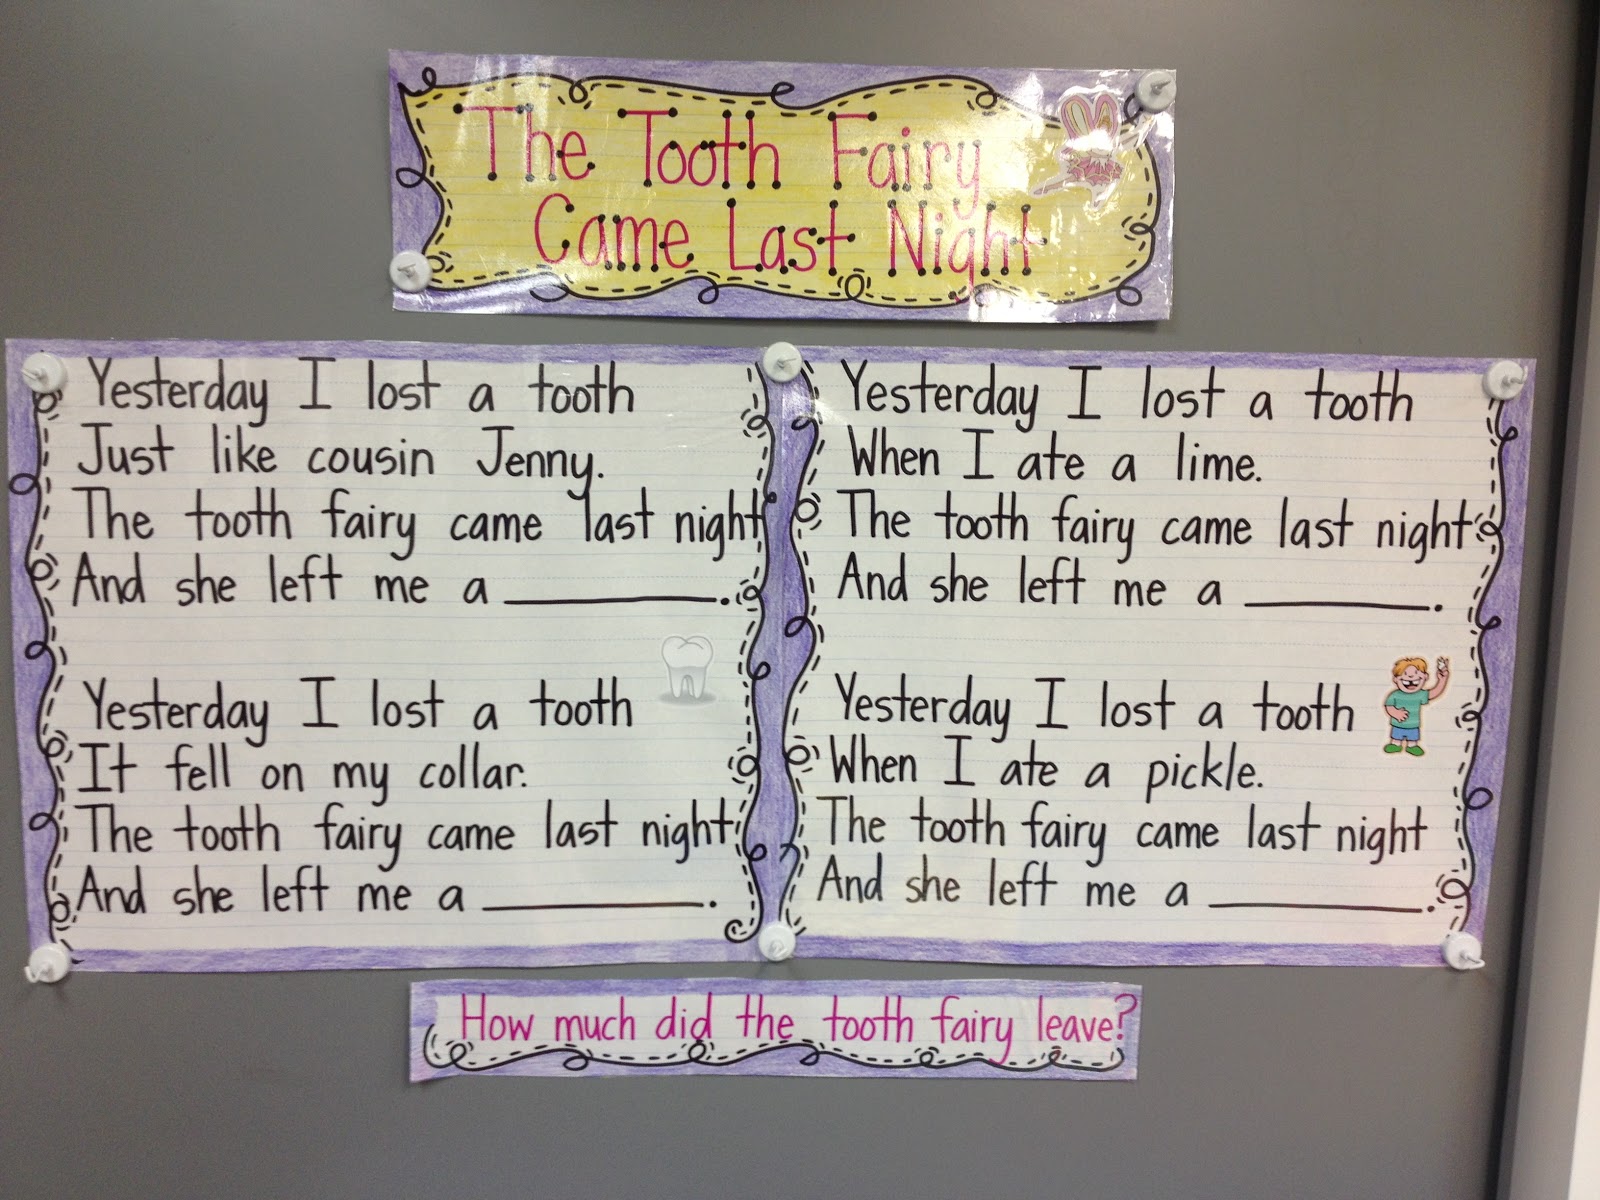 The Tooth Fairy
Came Last Night
Yesterday I lost a tooth
Just like cousin Jenny.
The tooth fairy came last night
And she left me a __________.
Yesterday I lost a tooth
It fell on my collar.
The tooth fairy came last night
And she left me a __________.
Yesterday I lost a tooth
When I ate a lime.
The tooth fairy came last night
And she left me a __________.
Yesterday I lost a tooth
When I ate a pickle.
The tooth fairy came last night
And she left me a __________.
How much did the tooth fairy leave?